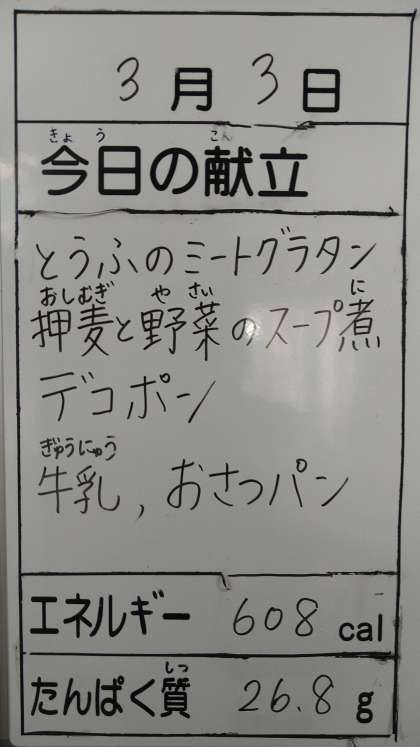 3月3日
きょう こん
今日の献立
とうふのミートグラタン
おしむぎ やさい に
押麦と野菜のスープ煮
デコポン
ぎゅうにゅう
牛乳, おさつパン
エネルギー 608 cal
しつ
たんぱく質 26.8 g